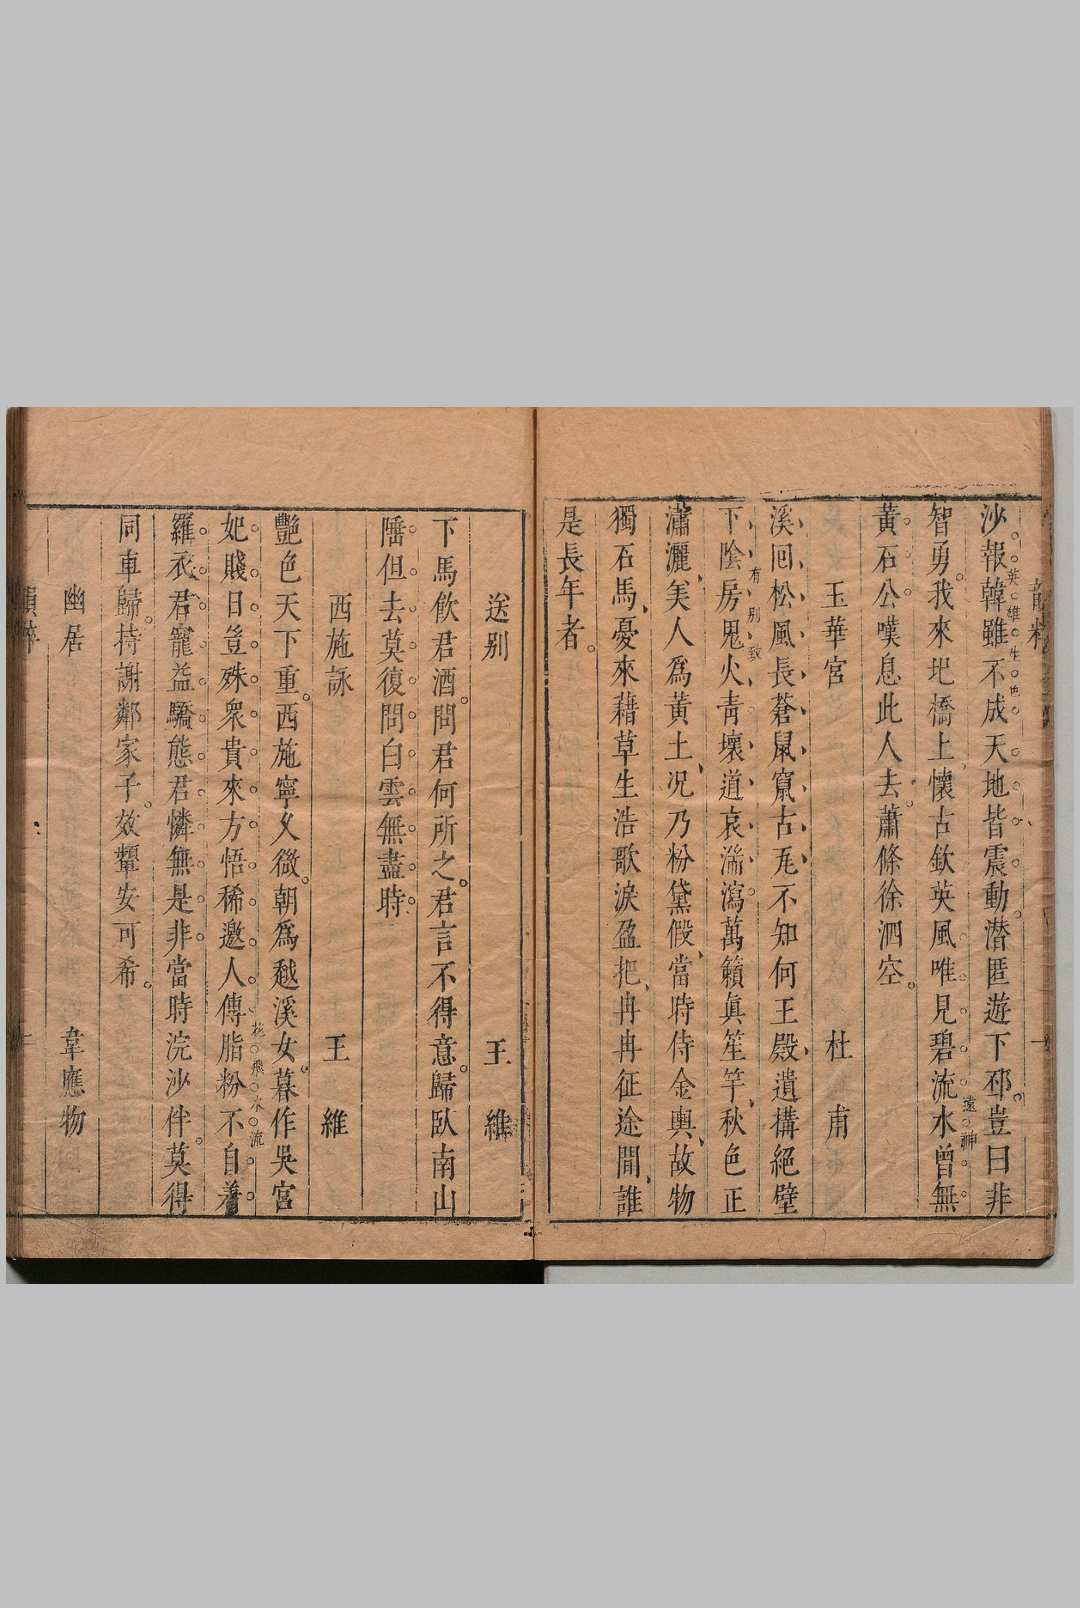 沙報韓雖不成天地皆震動潛匿遊下邳豈曰非
英雄生色
智勇我來圯橋上懷古欽英風唯見碧流水曾無
遠神
黃石公嘆息此人去蕭條徐泗空
玉華宮 杜甫
溪回松風長蒼鼠竄古瓦不知何王殿遺構絕壁
下陰房鬼火青壞道哀湍瀉萬籟真笙竽秋色正
有別致
瀟灑美人爲黃土况乃粉黛假當時侍金輿故物
獨石馬憂來藉草生浩歌淚盈把冉冉征途間誰
是長年者
送別 王維
下馬飲君酒問君何所之君言不得意歸臥南山
陲但去莫復問白雲無盡時
西施詠 王維
艷色天下重西施寧久微朝爲越溪女暮作吳宮
妃賤日豈殊衆貴來方悟稀邀人傳脂粉不自着
花飛水流
羅衣君寵益驕態君憐無是非當時浣沙伴莫得
同車歸持謝鄰家子效顰安可希
幽居 韋應物